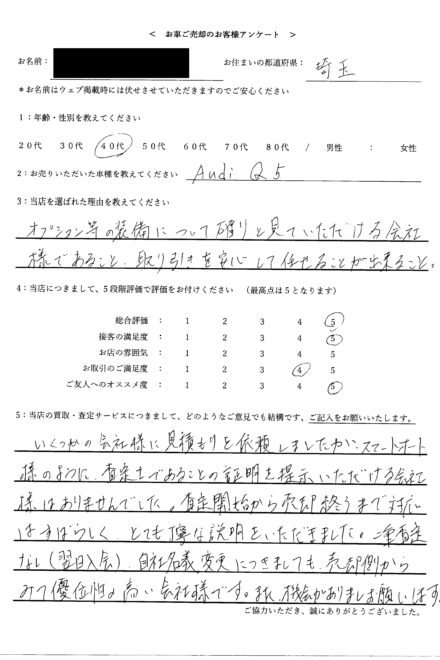 ＜　お車ご売却のお客様アンケート　＞
お名前：　お住まいの都道府県：　埼玉
＊お名前はウェブ掲載時には伏せさせていただきますのでご安心ください
1：年齢・性別を教えてください
20代　30代　40代　50代　60代　70代　80代　/　男性　：　女性
2：お売りいただいた車種を教えてください　Audi Q5
3：当店を選ばれた理由を教えてください
オプション等の装備について確りと見ていただける会社
様であること、取り引きを安心して任せることが出来ること。
4：当店につきまして、5段階評価で評価をお付けください　（最高点は5となります）
総合評価　：　1　2　3　4　5
接客の満足度　：　1　2　3　4　5
お店の雰囲気　：　1　2　3　4　5
お取引のご満足度　：　1　2　3　4　5
ご友人へのオススメ度　：　1　2　3　4　5
5：当店の買取・査定サービスにつきまして、どのようなご意見でも結構です、ご記入をお願いいたします。
いくつかの会社様に見積もりを依頼しましたが、スマートオート
様のように、査定士であることの証明を提示いただける会社
様はありませんでした。査定開始から売却終うまで対応
はすばらしく、とても丁寧な説明をいただきました。二重査定
なし（翌日入金）、自社名義変更につきましても、売却側から
みて優位性の高い会社様です。また機会がありましたらお願いします。
ご協力いただき、誠にありがとうございました。